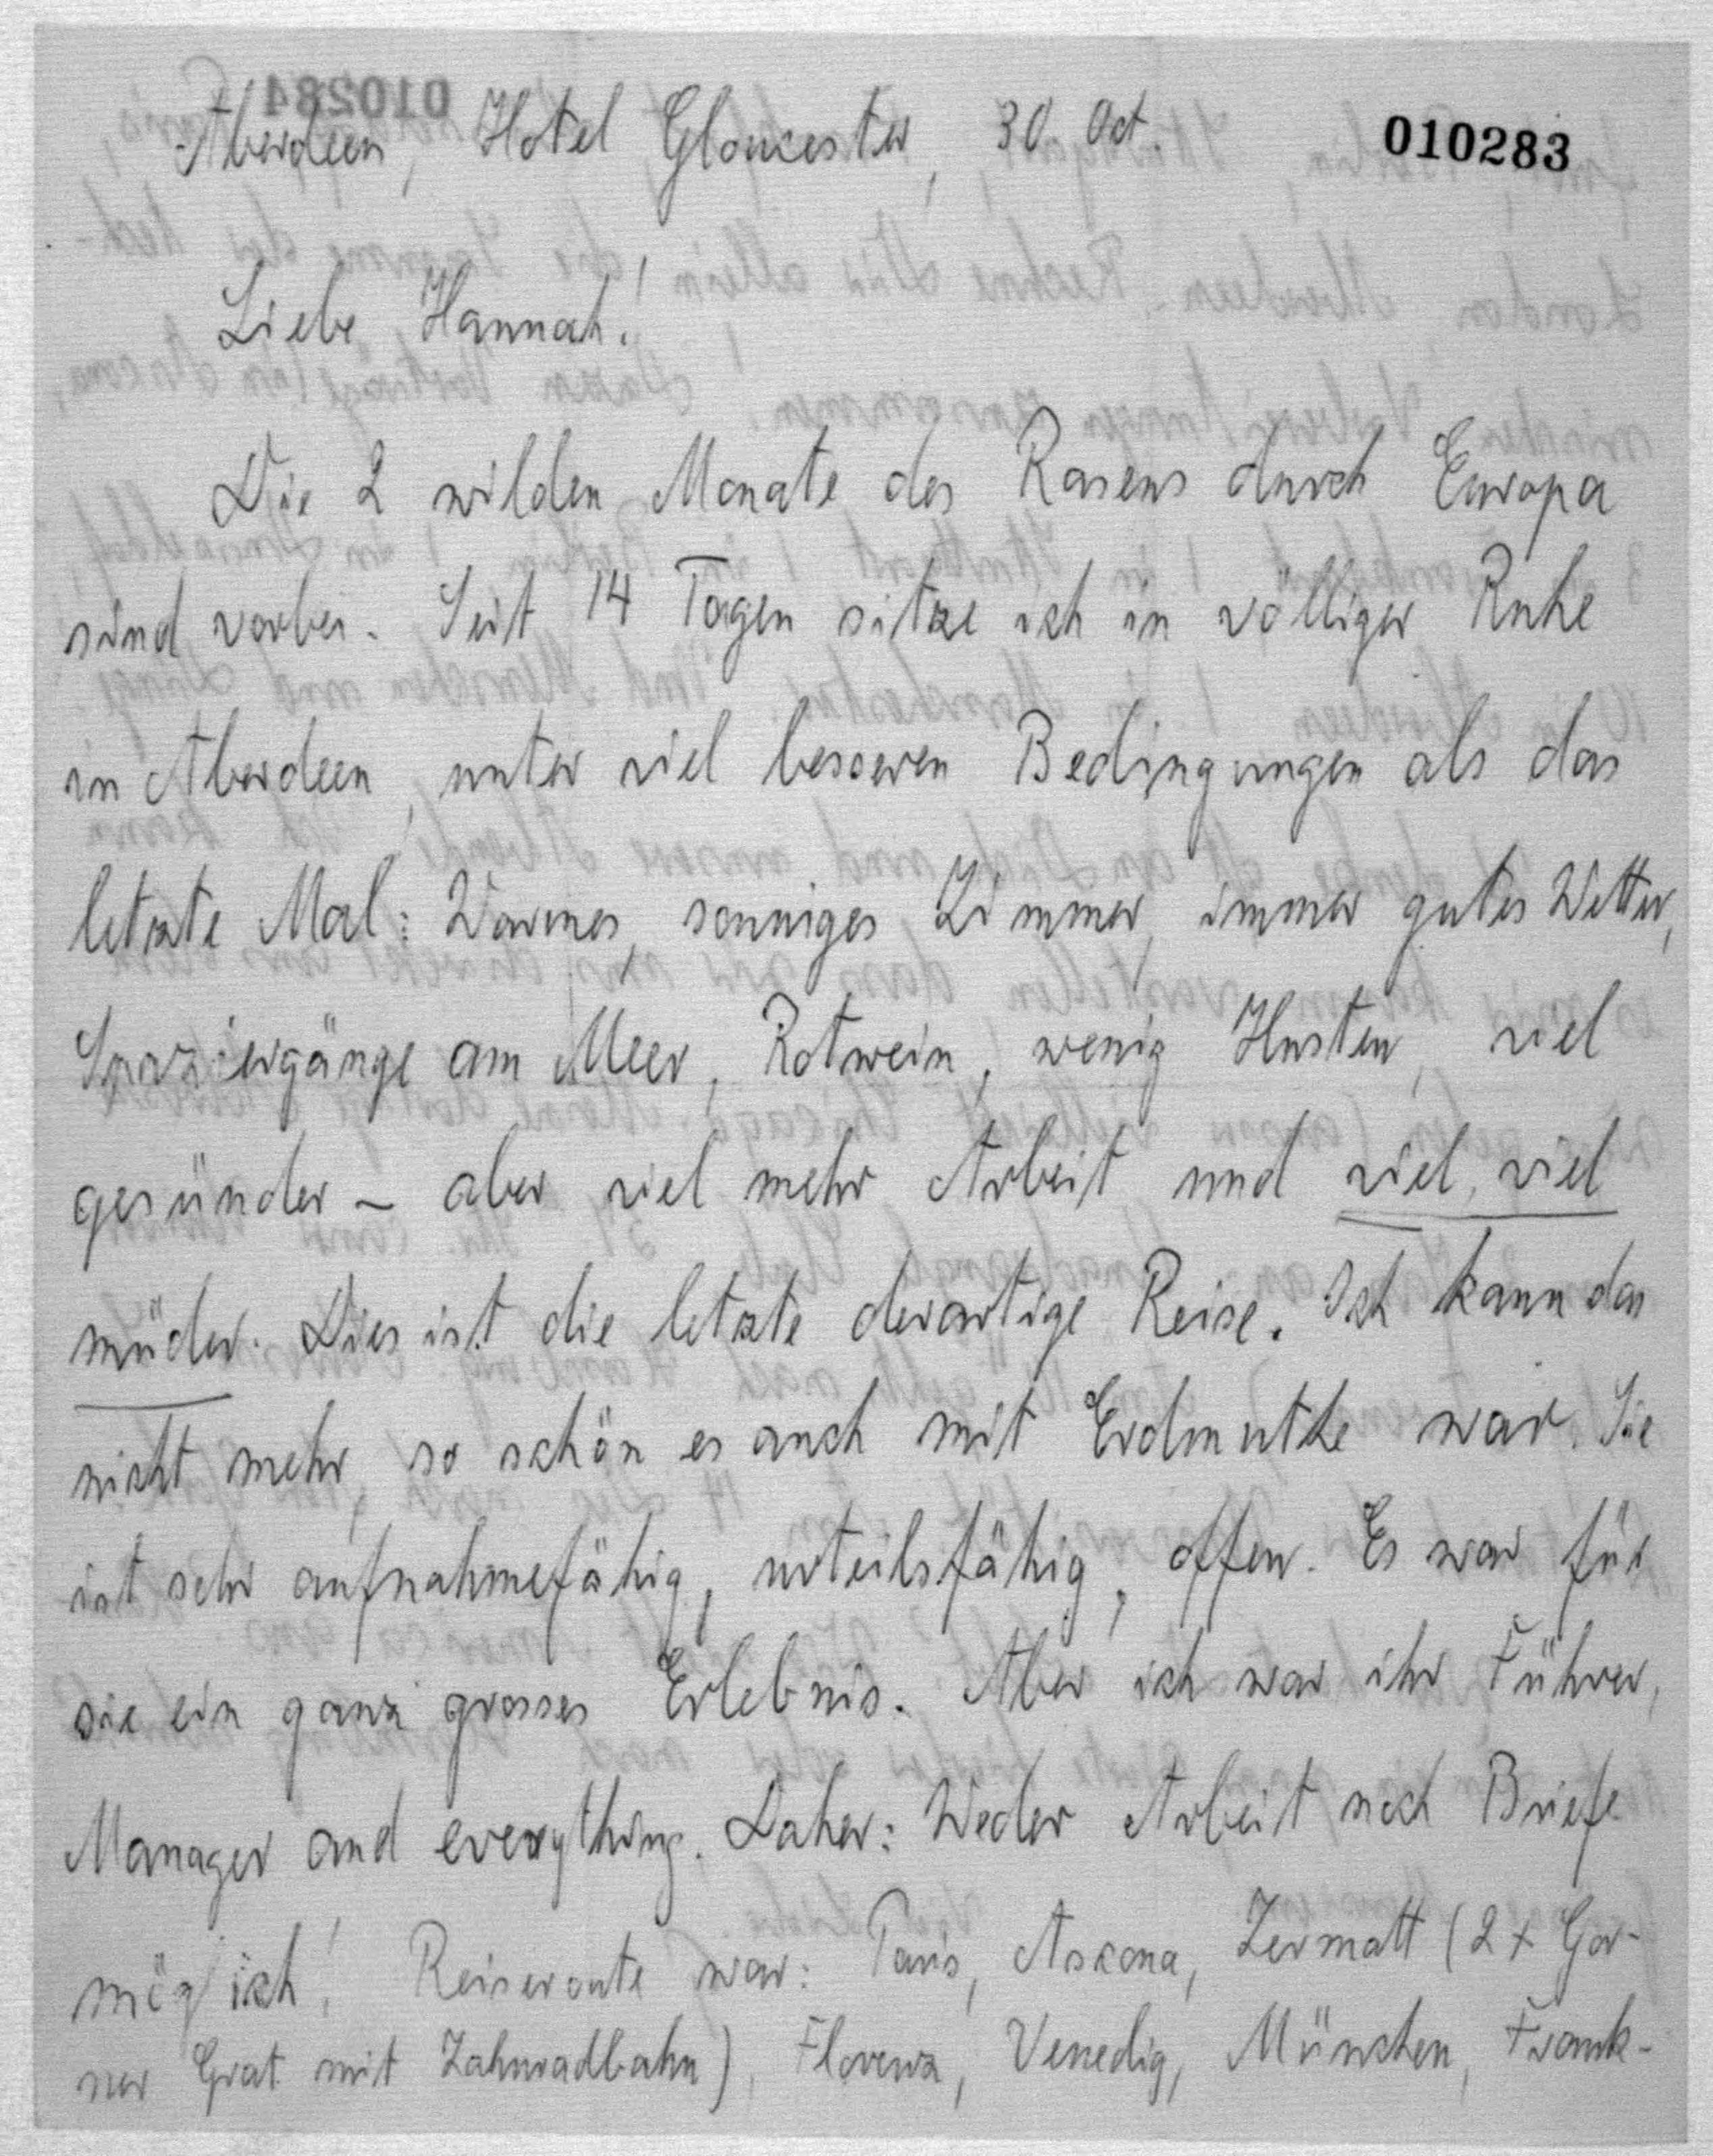 Aberdeen, Hotel Gloucester, 30. Oct.
010283
Liebe Hannah!
Die 2 wilden Monate des Rasens durch Europa
sind vorbei. Seit 14 Tagen sitze ich in völliger Ruhe
in Aberdeen, unter viel besseren Bedingungen als das
letzte Mal: Warmes, sonniges Zimmer, immer gutes Wetter,
Spaziergänge am Meer, Rotwein, wenig Husten, viel
gesünder – aber viel mehr Arbeit und viel, viel
müder. Dies ist die letzte derartige Reise. Ich kann das
nicht mehr, so schön es auch mit Erdmuthe war. Sie
ist sehr aufnahmefähig, urteilsfähig, offen. Es war für
sie ein ganz grosses Erlebnis. Aber ich war ihr Führer,
Manager and everything. Daher: Weder Arbeit noch Briefe
möglich! Reiseroute war: Paris, Askona, Zermatt (2 x Gor-
ner Grat mit Zahnradbahn), Florenz, Venedig, München, Frank-